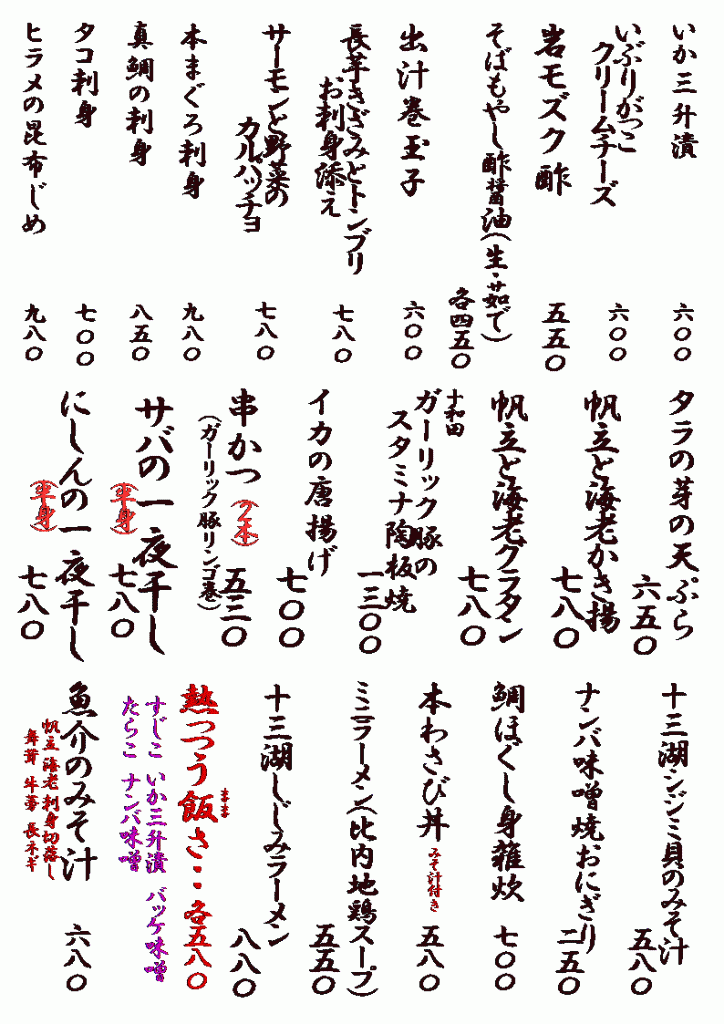 いか三升漬
六〇〇
いぶりがっこ
クリームチーズ
六〇〇
岩モズク酢
五五〇
そばもやし酢醤油(生・茹で)
各四五〇
出汁巻玉子
六〇〇
長芋きざみとトンブリ
お刺身添え
七八〇
サーモンと野菜の
カルパッチョ
七八〇
本まぐろ刺身
九八〇
真鯛の刺身
八五〇
タコ刺身
七〇〇
ヒラメの昆布じめ
九八〇
タラの芽の天ぷら
六五〇
帆立と海老かき揚
七八〇
帆立と海老グラタン
七八〇
十和田
ガーリック豚の
スタミナ陶板焼
一三〇〇
イカの唐揚げ
七〇〇
串かつ(2本)
(ガーリック豚リンゴ巻)
五三〇
サバの一夜干し
(半身)
七八〇
にしんの一夜干し
(半身)
七八〇
十三湖シジミ貝のみそ汁
五八〇
ナンバ味噌焼おにぎり
二五〇
鯛ほぐし身雑炊
七〇〇
本わさび丼
みそ汁付き
五八〇
ミニラーメン(比内地鶏スープ)
五五〇
十三湖しじみラーメン
八八〇
熱っつう飯さ・・各五八〇
まま
すじこ いか三升漬 バッケ味噌
たらこ ナンバ味噌
魚介のみそ汁
帆立 海老 刺身切落し
舞茸 牛蒡 長ネギ
六八〇